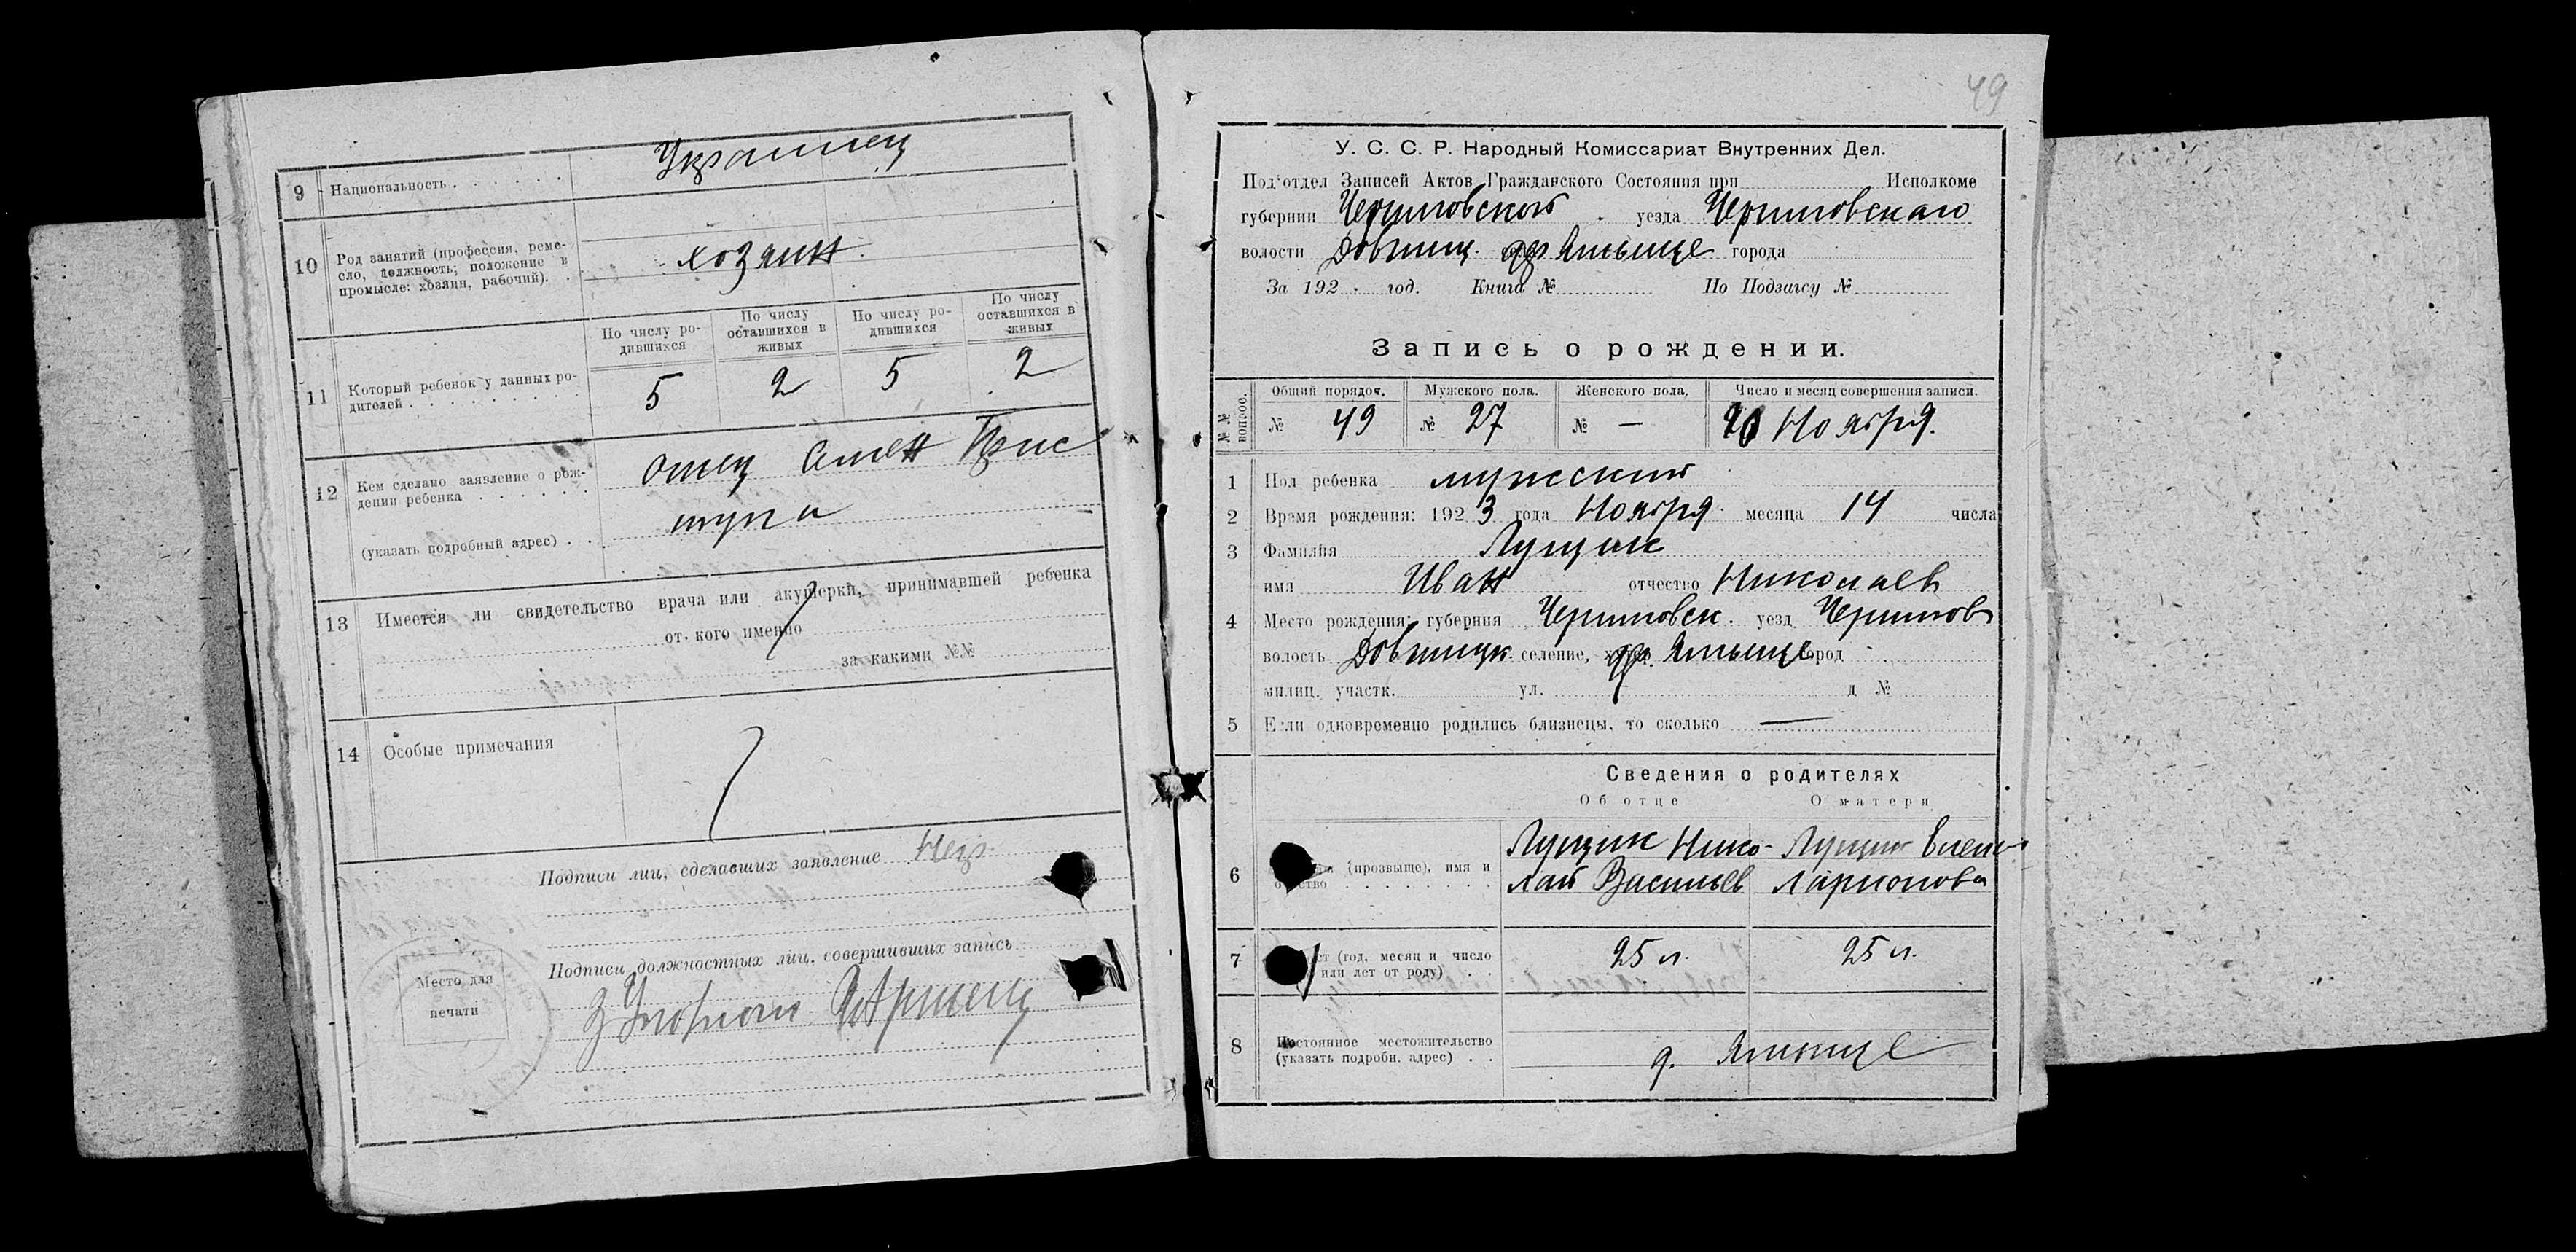 9 Национальность . . . . . . Украинец
10 Род занятий (профессия, реме-
сло, должность; положение в
промысле: хозяин, рабочий). . хозяин
По числу ро-
дившихся
По числу
оставшихся в
живых
По числу ро-
дившихся
По числу
оставшихся в
живых
11 Который ребенок у данных ро-
дителей . . . . . . . . . 5 2 5 2
12 Кем сделано заявление о рож-
дении ребенка . . . . . . отец Семен Прис
тупа
(указать подробный адрес) . .
13 Имеется ли свидетельство врача или акушерки, принимавшей ребенка
от кого именно
за какими №№
14 Особые примечания
Подписи лиц, сделавших заявление Негр.
Подписи должностных лиц, совершивших запись
Место для
печати
49
У. С. С. Р. Народный Комиссариат Внутренних Дел.
Под‘отдел Записей Актов Гражданского Состояния при Исполкоме
губернии Черниговской уезда Черниговскаго
волости Довжиц. дер Ямыще города
За 192 . год. Книга № По Подзагсу №
Запись о рождении.
№№ вопрос.
Общий порядок. Мужского пола. Женского пола, Число и месяц совершения записи.
№ 49 № 27 № — 20 Ноября.
1 Пол ребенка мужский
2 Время рождения: 1923 года Ноября месяца 14 числа
3 Фамилия Лущик
имя Иван отчество Николаев
4 Место рождения: губерния Черниговск. уезд Чернигов
волость Довжицк. селение, др. Ямыще город
милиц. участк. ул. д №
5 Если одновременно родились близнецы, то сколько —
Сведения о родителях
Об отце О матери
6 (прозвыще), имя и Лущик Нико- Лущик Елена
лай Васильев Ларионова
7 (год, месяц и число 25 л. 25 л.
или лет от роду) . .
8 Постоянное местожительство
(указать подробн. адрес) . . д. Ямыще